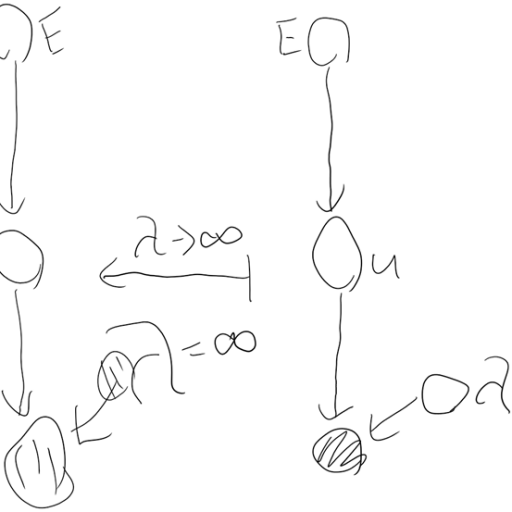 E
E
λ→∞
u
λ=∞
λ